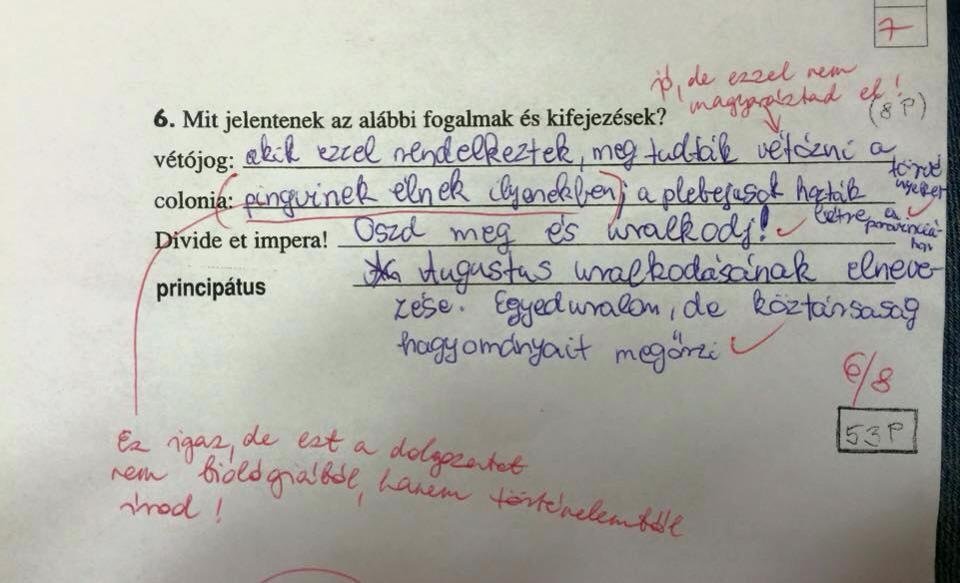 7
jó, de ezzel nem
magyaráztad el!
(8P)
6. Mit jelentenek az alábbi fogalmak és kifejezések?
vétójog: akik ezzel rendelkeztek, meg tudták vétózni a
törvényeket
colonia: (pingvinek élnek ilyenekben); a plebejusok hozták
létre a
provinciákban
Divide et impera! Oszd meg és uralkodj!
principátus Augustus uralkodásának elneve-
zése. Egyeduralom, de köztársaság
hagyományait megőrzi
6/8
53P
Ez igaz, de ezt a dolgozatot
nem biológiából, hanem történelemből
írod!